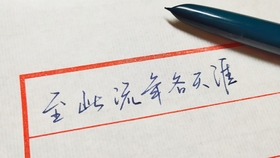 至此流年各天涯